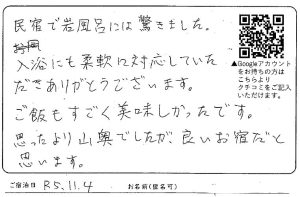 民宿で岩風呂には驚きました。
入浴にも柔軟に対応していた
だきありがとうございます。
ご飯もすごく美味しかったです。
思ったより山奥でしたが、良いお宿だと
思います。
▲Googleアカウント
をお持ちの方は
こちらより
クチコミをご記入
いただけます。
ご宿泊日 R5.11.4 お名前(匿名可)